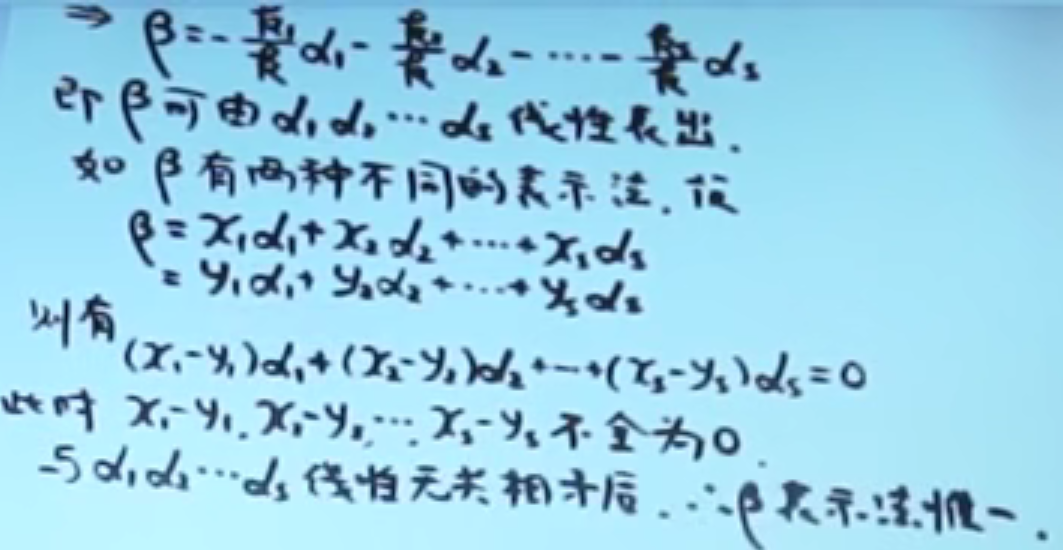 ⇒ β=-k₁/k α₁-k₂/k α₂-⋯-kₛ/k αₛ
即 β可由α₁α₂⋯αₛ线性表出.
如 β有两种不同的表示法.设
β=x₁α₁+x₂α₂+⋯+xₛαₛ
=y₁α₁+y₂α₂+⋯+yₛαₛ
则有
(x₁-y₁)α₁+(x₂-y₂)α₂+⋯+(xₛ-yₛ)αₛ=0
此时 x₁-y₁,x₂-y₂,⋯,xₛ-yₛ不全为0.
与α₁α₂⋯αₛ线性无关相矛盾.∴β表示法惟一.